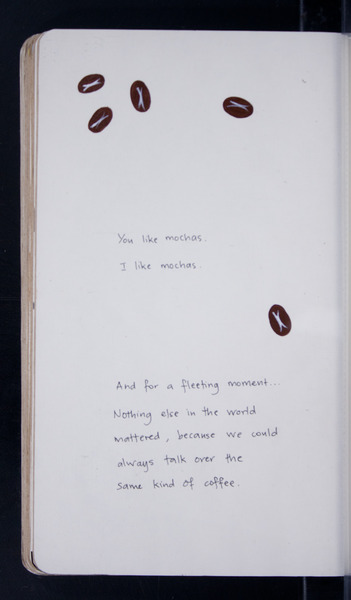 You like mochas.
I like mochas.
And for a fleeting moment...
Nothing else in the world
mattered, because we could
always talk over the
same kind of coffee.